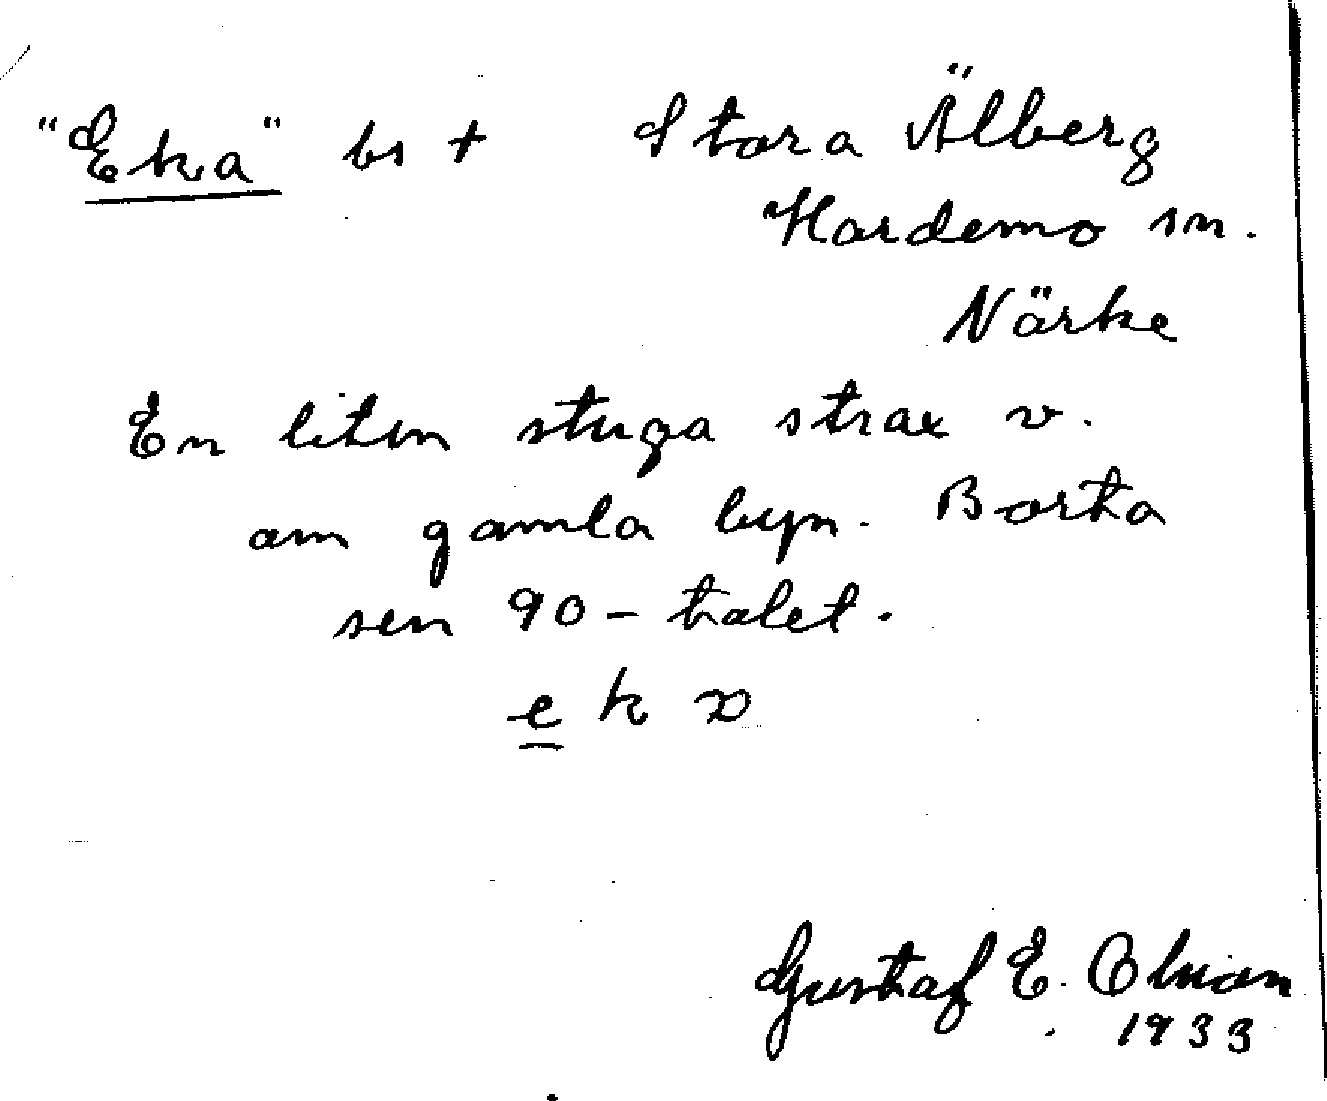 "Eka" bs + Stora Älberg
Hardemo sn.
Närke
En liten stuga strax v.
om gamla byn. Borta
sen 90-talet.
e k
Gustaf E.
1933